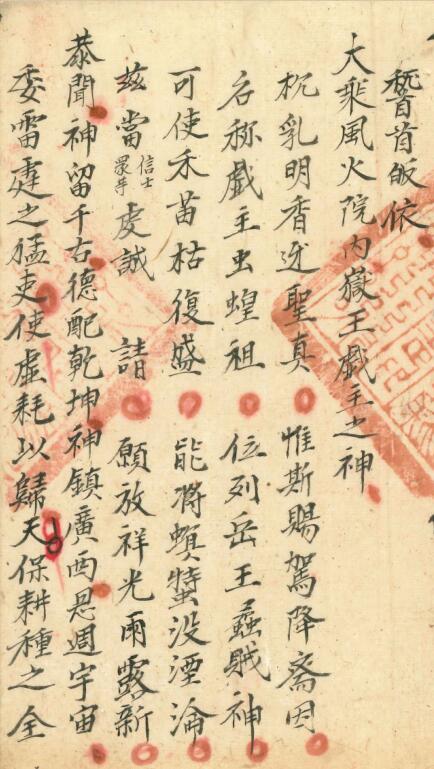 稽首皈依
大乘風火院内嶽王戯主之神
乳明香迓聖真 惟斯賜駕降齋因
名称戯主虫蝗祖 位列岳王蟊賊神
可使禾苗枯復盛 能將螟没湮淪
兹當信士眾等虔誠 請 願放祥光雨露新
恭聞神留千古德配乾坤神鎮廣西恩週宇宙
委雷霆之猛吏使虛耗以歸天保耕種之全